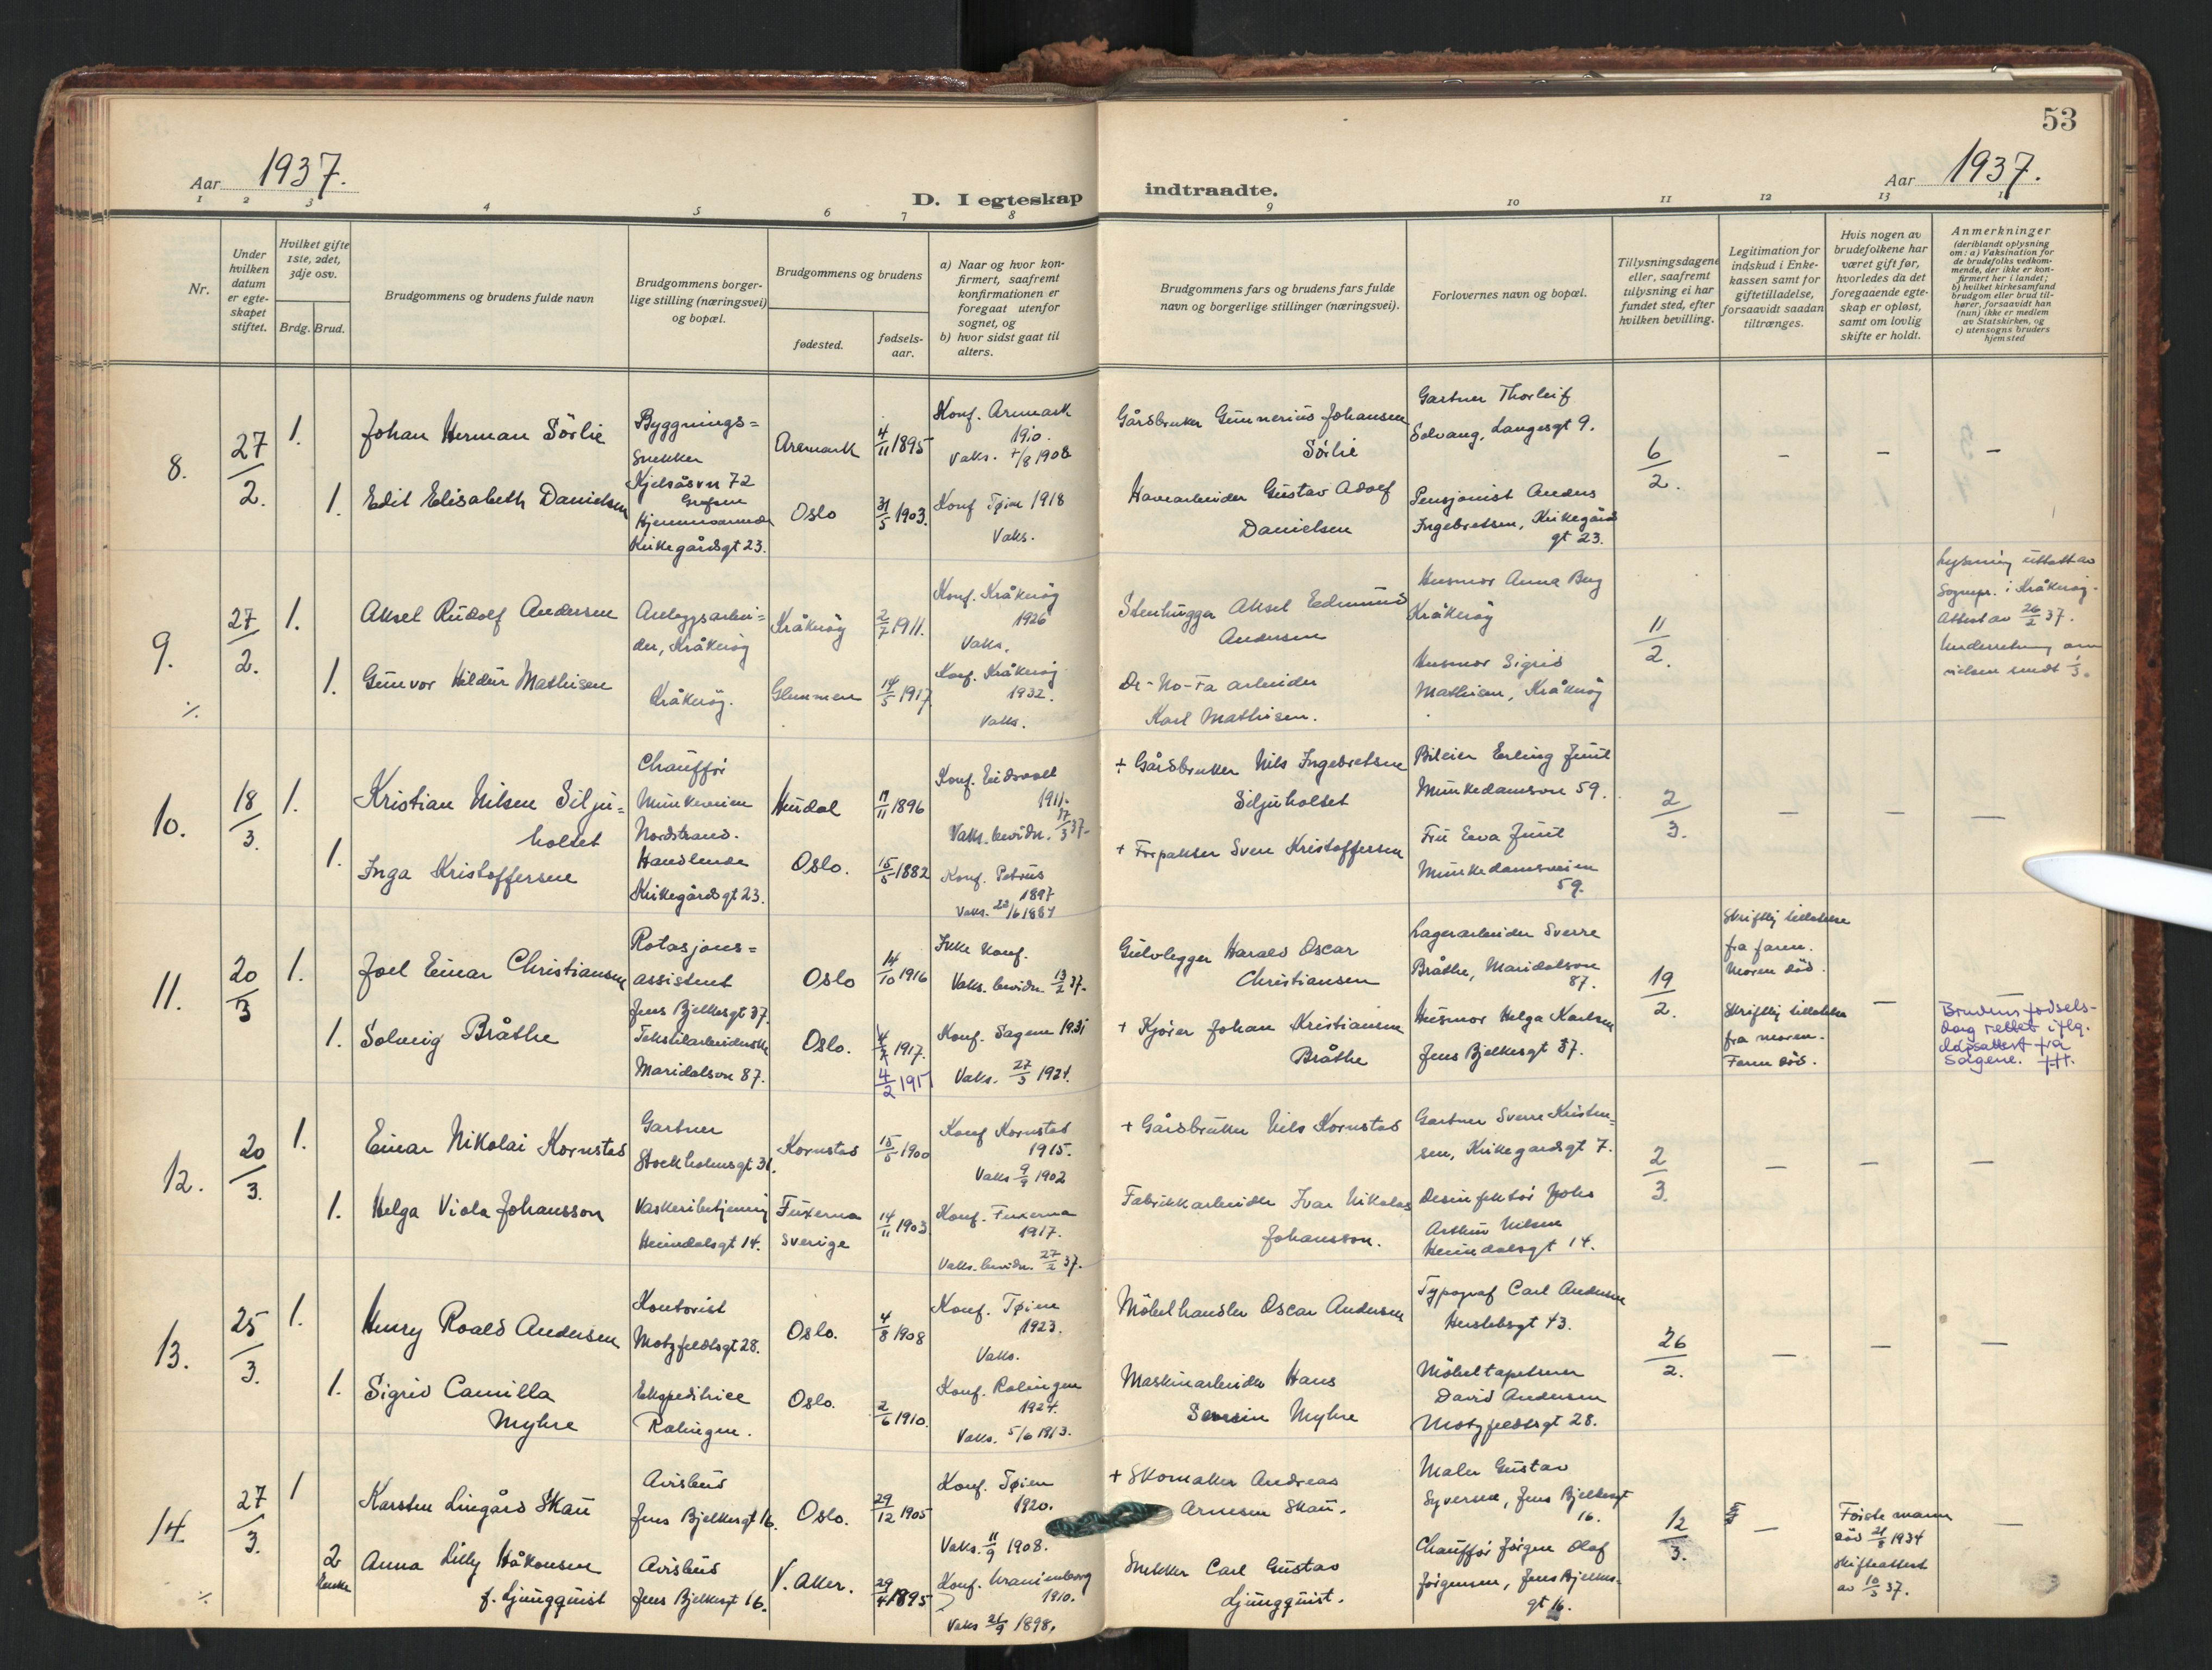 53
Aar 1937.
D. I egteskap indtraadte.
Aar 1937.
1 2 3 4 5 6 7 8 9 10 11 12 13
Nr.
Under hvilken datum er egteskapet stiftet.
Hvilket gifte 1ste, 2det, 3dje osv.
Brdg. Brud.
Brudgommens og brudens fulde navn
Brudgommens borgerlige stilling (næringsvei) og bopæl.
Brudgommens og brudens
fødested.
fødselsaar.
a) Naar og hvor konfirmert, saafremt konfirmationen er foregaat utenfor sognet, og
b) hvor sidst gaat til alters.
Brudgommens fars og brudens fars fulde navn og borgerlige stillinger (næringsvei).
Forlovernes navn og bopæl.
Tillysningsdagene eller, saafremt tillysning ei har fundet sted, efter hvilken bevilling.
Legitimation for indskud i Enkekassen samt for giftetilladelse, forsaavidt saadan tiltrænges.
Hvis nogen av brudefolkene har været gift før, hvorledes da det foregaaende egteskap er opløst, samt om lovlig skifte er holdt.
Anmerkninger
(deriblandt oplysning om: a) Vaksination for de brudefolks vedkommende, der ikke er konfirmert her i landet; b) hvilket kirkesamfund brudgom eller brud tilhører, forsaavidt han (hun) ikke er medlem av Statskirken, og c) utensogns bruders hjemsted
8.
27/2.
1.
Johan Herman Sörlie
Byggningssnekker
Kjelsåsvn 72
Grefsen
Aremark
4/11 1895
Konf. Aremark
1910.
Vaks.
Gårdbruker Gunnerius Johansen
Sørlie
Gartner Thorleif
Solvang, Langesgt 9.
6/2.
– – –
1.
Edit Elisabeth Danielsen
Hjemmeværende
Kirkegårdsgt 23.
Oslo
31/5 1903.
Konf Tøien 1918
Vaks.
Havearbeider Gustav Adolf
Danielsen
Pensjonist Anders
Ingebretsen, Kirkegård
gt 23.
9.
27/2.
1.
Aksel Rudolf Andersen
Anleggsarbei=
der, Kråkerøy
Kråkerøy
2/7 1911.
Konf. Kråkerøy
1926
Vaks.
Stenhugger Aksel Edmund
Andersen
Husmor Anna Bug
Kråkerøy
11/2.
Lysning utstedt av
Sognepr. i Kråkerøy.
Attest av 26/2 37.
Underretning om
vielsen sendt 1/3.
1.
Gunvor Hildur Mathisen
Kråkerøy.
Glemmen
14/5 1917
Konf. Kråkerøy
1932.
Vaks.
De-No-Fa arbeider
Karl Mathisen.
Husmor Sigrid
Mathisen, Kråkerøy
10.
18/3.
1.
Kristian Nilsen Silju=
holtet
Chauffør
Munkeveien
Nordstrand.
Hurdal
1896
Konf. Eidsvoll
1911.
Vaks. bevidn. 17/3 37.
+ Gårdbruker Nils Ingebretsen
Siljuholtet
Bileier Erling Juul
Munkedamsvn 59.
2/3.
– – –
1.
Inga Kristoffersen
Handlende
Kirkegårdsgt 23.
Oslo.
15/5 1882
Konf. Petrus
1897
Vaks. 22/6 1884
+ Forpakter Sven Kristoffersen
Fru Eva Juul
Munkedamsveien
59.
11.
20/3
1.
Joel Einar Christiansen
Rotasjons=
assistent
Jens Bjelkesgt 37.
Oslo
14/10 1916
Ikke konf.
Vaks. bevidn. 13/2 37.
Gulvlegger Harald Oscar
Christiansen
Lagerarbeider Sverre
Bråthe, Maridalsvn
87.
19/2.
Skriftlig tilladelse
fra faren.
Moren död.
–
1.
Solveig Bråthe
Tekstilarbeiderske
Maridalsvn 87.
Oslo.
1917.
4/2 1917
Konf. Sagene 1931
Vaks. 27/3 1924.
+ Kjører Johan Kristiansen
Bråthe
Husmor Helga Karlsen
Jens Bjelkesgt 37.
Skriftlig tilladelse
fra moren.
Faren död.
Brudens fødsels-
dag rettet iflg.
dåpsattest fra
Sagene.
12.
20/3.
1.
Einar Nikolai Kornstad
Gartner
Stockholmsgt 31.
Kornstad
15/5 1900
Konf Kornstad
1915.
Vaks 9/9 1902
+ Gårdbruker Nils Kornstad
Gartner Sverre Kristen=
sen, Kirkegardsgt 7.
2/3.
– – –
1.
Helga Viola Johansson
Vaskeribetjening
Heimdalsgt 14.
Fuxerna
Sverige
14/11 1903
Konf. Fuxerna
1917.
Vaks. bevidn. 27/2 37.
Fabrikkarbeider Ivar Nikolas
Johansson.
Desinfektør Johs
Arthur Nilsen
Heimdalsgt 14.
13.
25/3.
1.
Henry Roald Andersen
Kontorist
Motzfeldtsgt 28.
Oslo.
4/8 1908
Konf. Tøien
1923.
Vaks.
Möbelhandler Oscar Andersen
Typograf Carl Andersen
Herslebsgt 43.
26/2.
– – –
1.
Sigrid Camilla
Myhre
Ekspeditrice
Rælingen.
Oslo.
2/6 1910.
Konf. Rælingen
1924.
Vaks. 5/6 1913.
Maskinarbeider Hans
Severin Myhre
Möbeltapetserer
David Andersen
Motzfeldtsgt 28.
14.
27/3.
1
Karsten Lingård Skau
Avisbud
Jens Bjelkesgt 16.
Oslo.
29/12 1905
Konf. Tøien
1920.
Vaks. 11/9 1908.
+ Skomaker Andreas
Arnesen Skau.
Maler Gustav
Syversen, Jens Bjelkesgt
16.
12/3.
–
Første mann
död 21/8 1934
Skifteattest
av 10/3 37.
–
2
Enke
Anna Lilly Håkonsen
f. Ljungquist
Avisbud
Jens Bjelkesgt 16.
V. Aker.
29/4 1895
Konf. Uranienborg
1910.
Vaks 21/9 1898.
Snekker Carl Gustav
Ljungquist.
Chauffør Jörgen Olaf
Jörgensen, Jens Bjelkes-
gt 16.